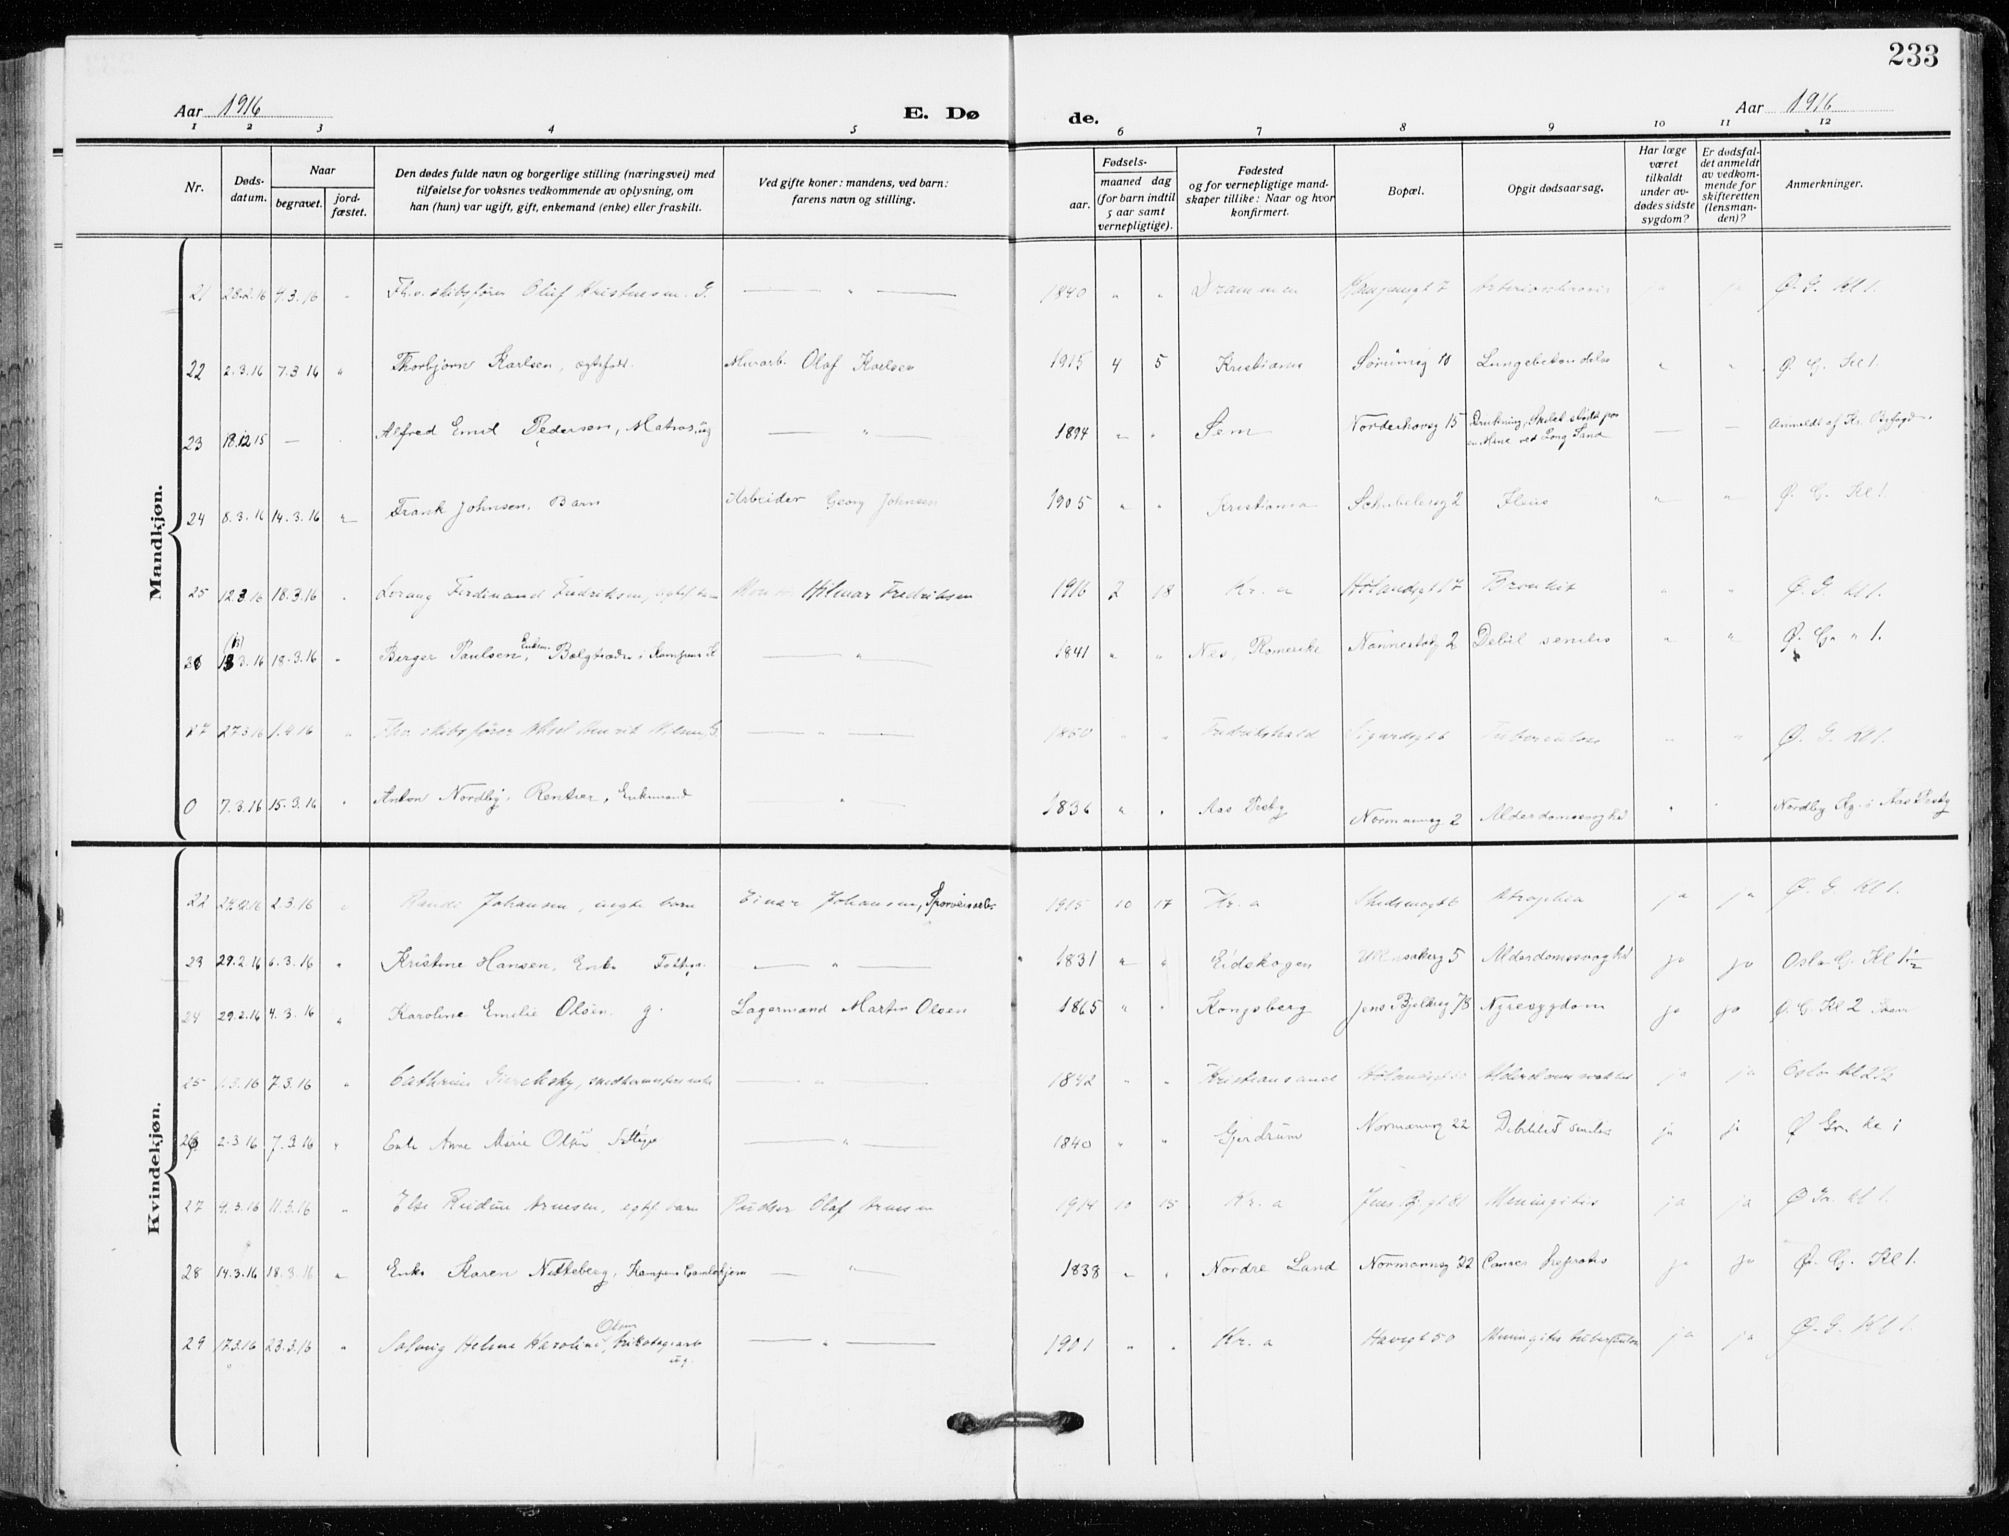 233
Aar 1916 E. Dø de. Aar 1916
1 2 3 4 5 6 7 8 9 10 11 12
Nr. Døds-datum. Naar begravet. jord-fæstet. Den dødes fulde navn og borgerlige stilling (næringsvei) med tilføielse for voksnes vedkommende av oplysning, om han (hun) var ugift, gift, enkemand (enke) eller fraskilt. Ved gifte koner: mandens, ved barn: farens navn og stilling. Fødsels- aar. maaned dag (for barn indtil 5 aar samt vernepligtige). Fødested og for vernepligtige mandskaper tillike: Naar og hvor konfirmert. Bopæl. Opgit dødsaarsag. Har læge været tilkaldt under avdødes sidste sygdom? Er dødsfaldet anmeldt av vedkommende for skifteretten (lensmanden)? Anmerkninger.
Mandkjøn.
21 28.2.16 4.3.16 " Fhv. skibsfører Oluf Kristensen. G. — " — 1840 " " Drammen Kampensgt 7 ja ja Ø. G. Kl 1.
22 2.3.16 7.3.16 " Thorbjørn Karlsen, ægtefødt. Murarb. Olaf Karlsen 1915 4 5 Kristiania Sørumsg 10 Lungebetændelse " " Ø. G. Kl 1.
23 18.12.15 — Alfred Emil Pedersen, Matros, ug — " — 1894 " " Sem Norderhovsg 15 Drukning, Skibet stødt paa en Mine ved Long Sand — — Anmeldt af Kr. Byfogd
24 8.3.16 14.3.16 " Frank Johnsen, Barn Arbeider Georg Johnsen 1905 " " Kristiania Schübelersg 2 Ileus " " Ø. G. Kl 1.
25 12.3.16 18.3.16 " Lorang Ferdinand Fredriksen, Hilmar Fredriksen 1916 2 18 Kr.a Hølandsgt 17 Bronkit " " Ø. G. Kl 1.
26 13.3.16 18.3.16 " Berger Paulsen, Enkem. Bælgtræder i Kampens K — " — 1841 " " Nes, Romerike Nannestadg 2 Debil senilis " " Ø. G. " 1.
27 27.3.16 1.4.16 " Fhv. skibsfører Aksel Henrik Nilsen, G. — " — 1850 " " Fredrikshald Sigurdsgt 6 Tuberculose " " Ø. G. Kl 1.
0 7.3.16 15.3.16 " Anton Nordby, Rentier, Enkemand — " — 1836 " " Aas Prstg Normannsg 2 Alderdomssvaghed " " Nordby Kg. i Aas Prstg
Kvindekjøn.
22 2.3.16 " Randi Johansen, uegte barn Einar Johansen, Sporveisarb. 1915 10 17 Kr.a Skedsmogt 6 Atrophia ja ja Ø. G. Kl 1.
23 29.2.16 6.3.16 " Kristine Hansen, Enke — " — 1831 " " Eidskogen 5 Alderdomssvaghed ja ja Oslo G. Kl 1½
24 29.2.16 4.3.16 " Karoline Emilie Olsen. g. Lagermand Martin Olsen 1865 " " Kongsberg Jens Bjelkesg 78 Nyresygdom ja ja Ø. G. Kl 2
25 1.3.16 7.3.16 " Cathrine — " — 1842 " " Kristiansand ja ja Oslo
26 2.3.16 7.3.16 " Enke Anne Marie Olsen — " — 1840 " " Gjerdrum Normannsg 22 Debilitas senilis ja ja Ø Gr. Kl 1
27 4.3.16 11.3.16 " Else Reidun Arnesen, egtef. barn Pudser Olaf Arnesen 1914 10 15 Kr.a Jens Bj. gt 81 Meningitis ja ja Ø Gr. Kl 1.
28 14.3.16 18.3.16 " Enke Karen Nitteberg, Kampens Gamlehjem — " — 1838 " " Nordre Land Normannsg 22 Cancer ja ja Ø. G. Kl 1.
29 17.3.16 23.3.16 " Solveig Helene Karoline Olsen, trikotagearb ug. — " — 1901 " " Kr.a Havegt 50 Meningitis tuberculosa ja ja Ø. G. Kl 1.